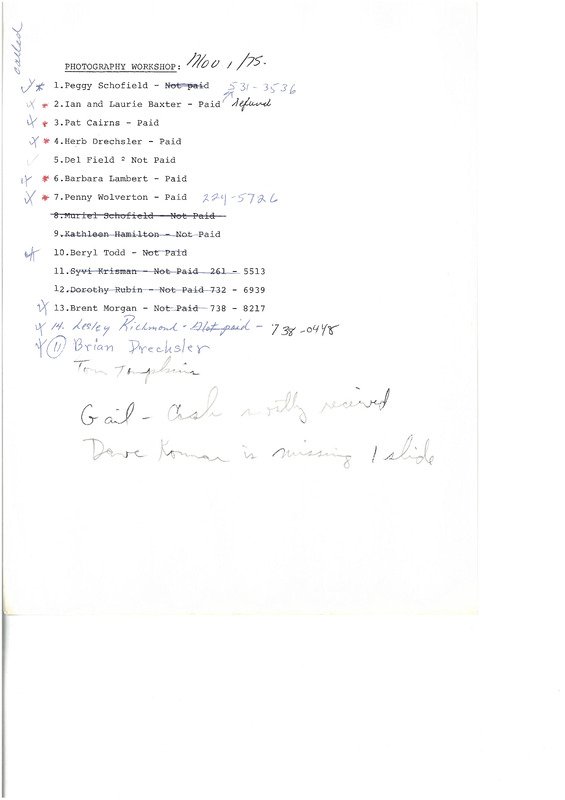 called
PHOTOGRAPHY WORKSHOP: Nov 1/75.
1.Peggy Schofield - Not paid 531-3536
2.Ian and Laurie Baxter - Paid Refund
3.Pat Cairns - Paid
4.Herb Drechsler - Paid
5.Del Field ² Not Paid
6.Barbara Lambert - Paid
7.Penny Wolverton - Paid 224-5726
8.Muriel Schofield - Not Paid
9.Kathleen Hamilton - Not Paid
10.Beryl Todd - Not Paid
11.Syvi Krisman - Not Paid 261 - 5513
12.Dorothy Rubin - Not Paid 732 - 6939
13.Brent Morgan - Not Paid 738 - 8217
14. Lesley Richmond - Not paid - 738-0448
11 Brian Drechsler
Tom Tompkins
Gail - Cash mostly received
Dave is missing 1 slide